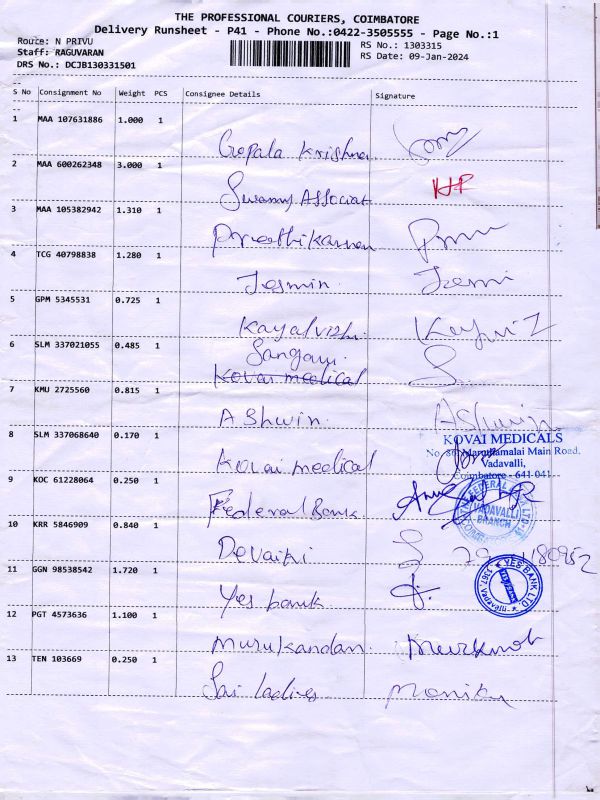 THE PROFESSIONAL COURIERS, COIMBATORE
Delivery Runsheet - P41 - Phone No.:0422-3505555 - Page No.:1
Route: N PRIVU
Staff: RAGUVARAN
DRS No.: DCJB130331501
RS No.: 1303315
RS Date: 09-Jan-2024
S No Consignment No Weight PCS Consignee Details Signature
1 MAA 107631886 1.000 1
Gopala Krishna
2 MAA 600262348 3.000 1
Swamy Associat
3 MAA 105382942 1.310 1
4 TCG 40798838 1.280 1
Jesmin
5 GPM 5345531 0.725 1
Kayalvizhi
6 SLM 337021055 0.485 1
Sangavi
Kovai medical
7 KMU 2725560 0.815 1
AShwin. AShwin
8 SLM 337068640 0.170 1
KOVAI MEDICALS
Marudamalai Main Road,
Vadavalli,
Coimbatore - 641 041
Kovai medical
9 KOC 61228064 0.250 1
Federal Bank
VADAVALLI
BRANCH
10 KRR 5846909 0.840 1
Devaiki
11 GGN 98538542 1.720 1
Yes bank
YES BANK LTD.
12 PGT 4573636 1.100 1
Murukandan
13 TEN 103669 0.250 1
Sai ladies Monika